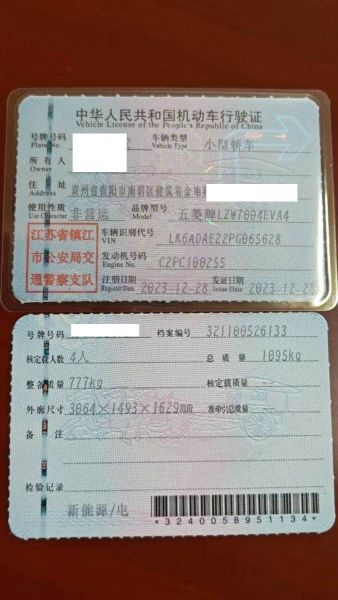 中华人民共和国机动车行驶证
Vehicle License of the People's Republic of China
号牌号码 Plate No. 车辆类型 Vehicle Type 小型轿车
所有人 Owner
住址 Address 贵州省贵阳市南明区
使用性质 Use Character 非营运 品牌型号 Model 五菱牌LZW7004EVA4
江苏省镇江
市公安局交
通警察支队
车辆识别代号 VIN LK6ADAE22PG065628
发动机号码 Engine No. C2PC100255
注册日期 Register Date 2023-12-28 发证日期 Issue Date 2023-12-28
号牌号码 档案编号 321100526133
核定载人数 4人 总质量 1095kg
整备质量 777kg 核定载质量
外廓尺寸 3064×1493×1629mm 准牵引总质量
备注
检验记录
新能源/电
*3240058951134*